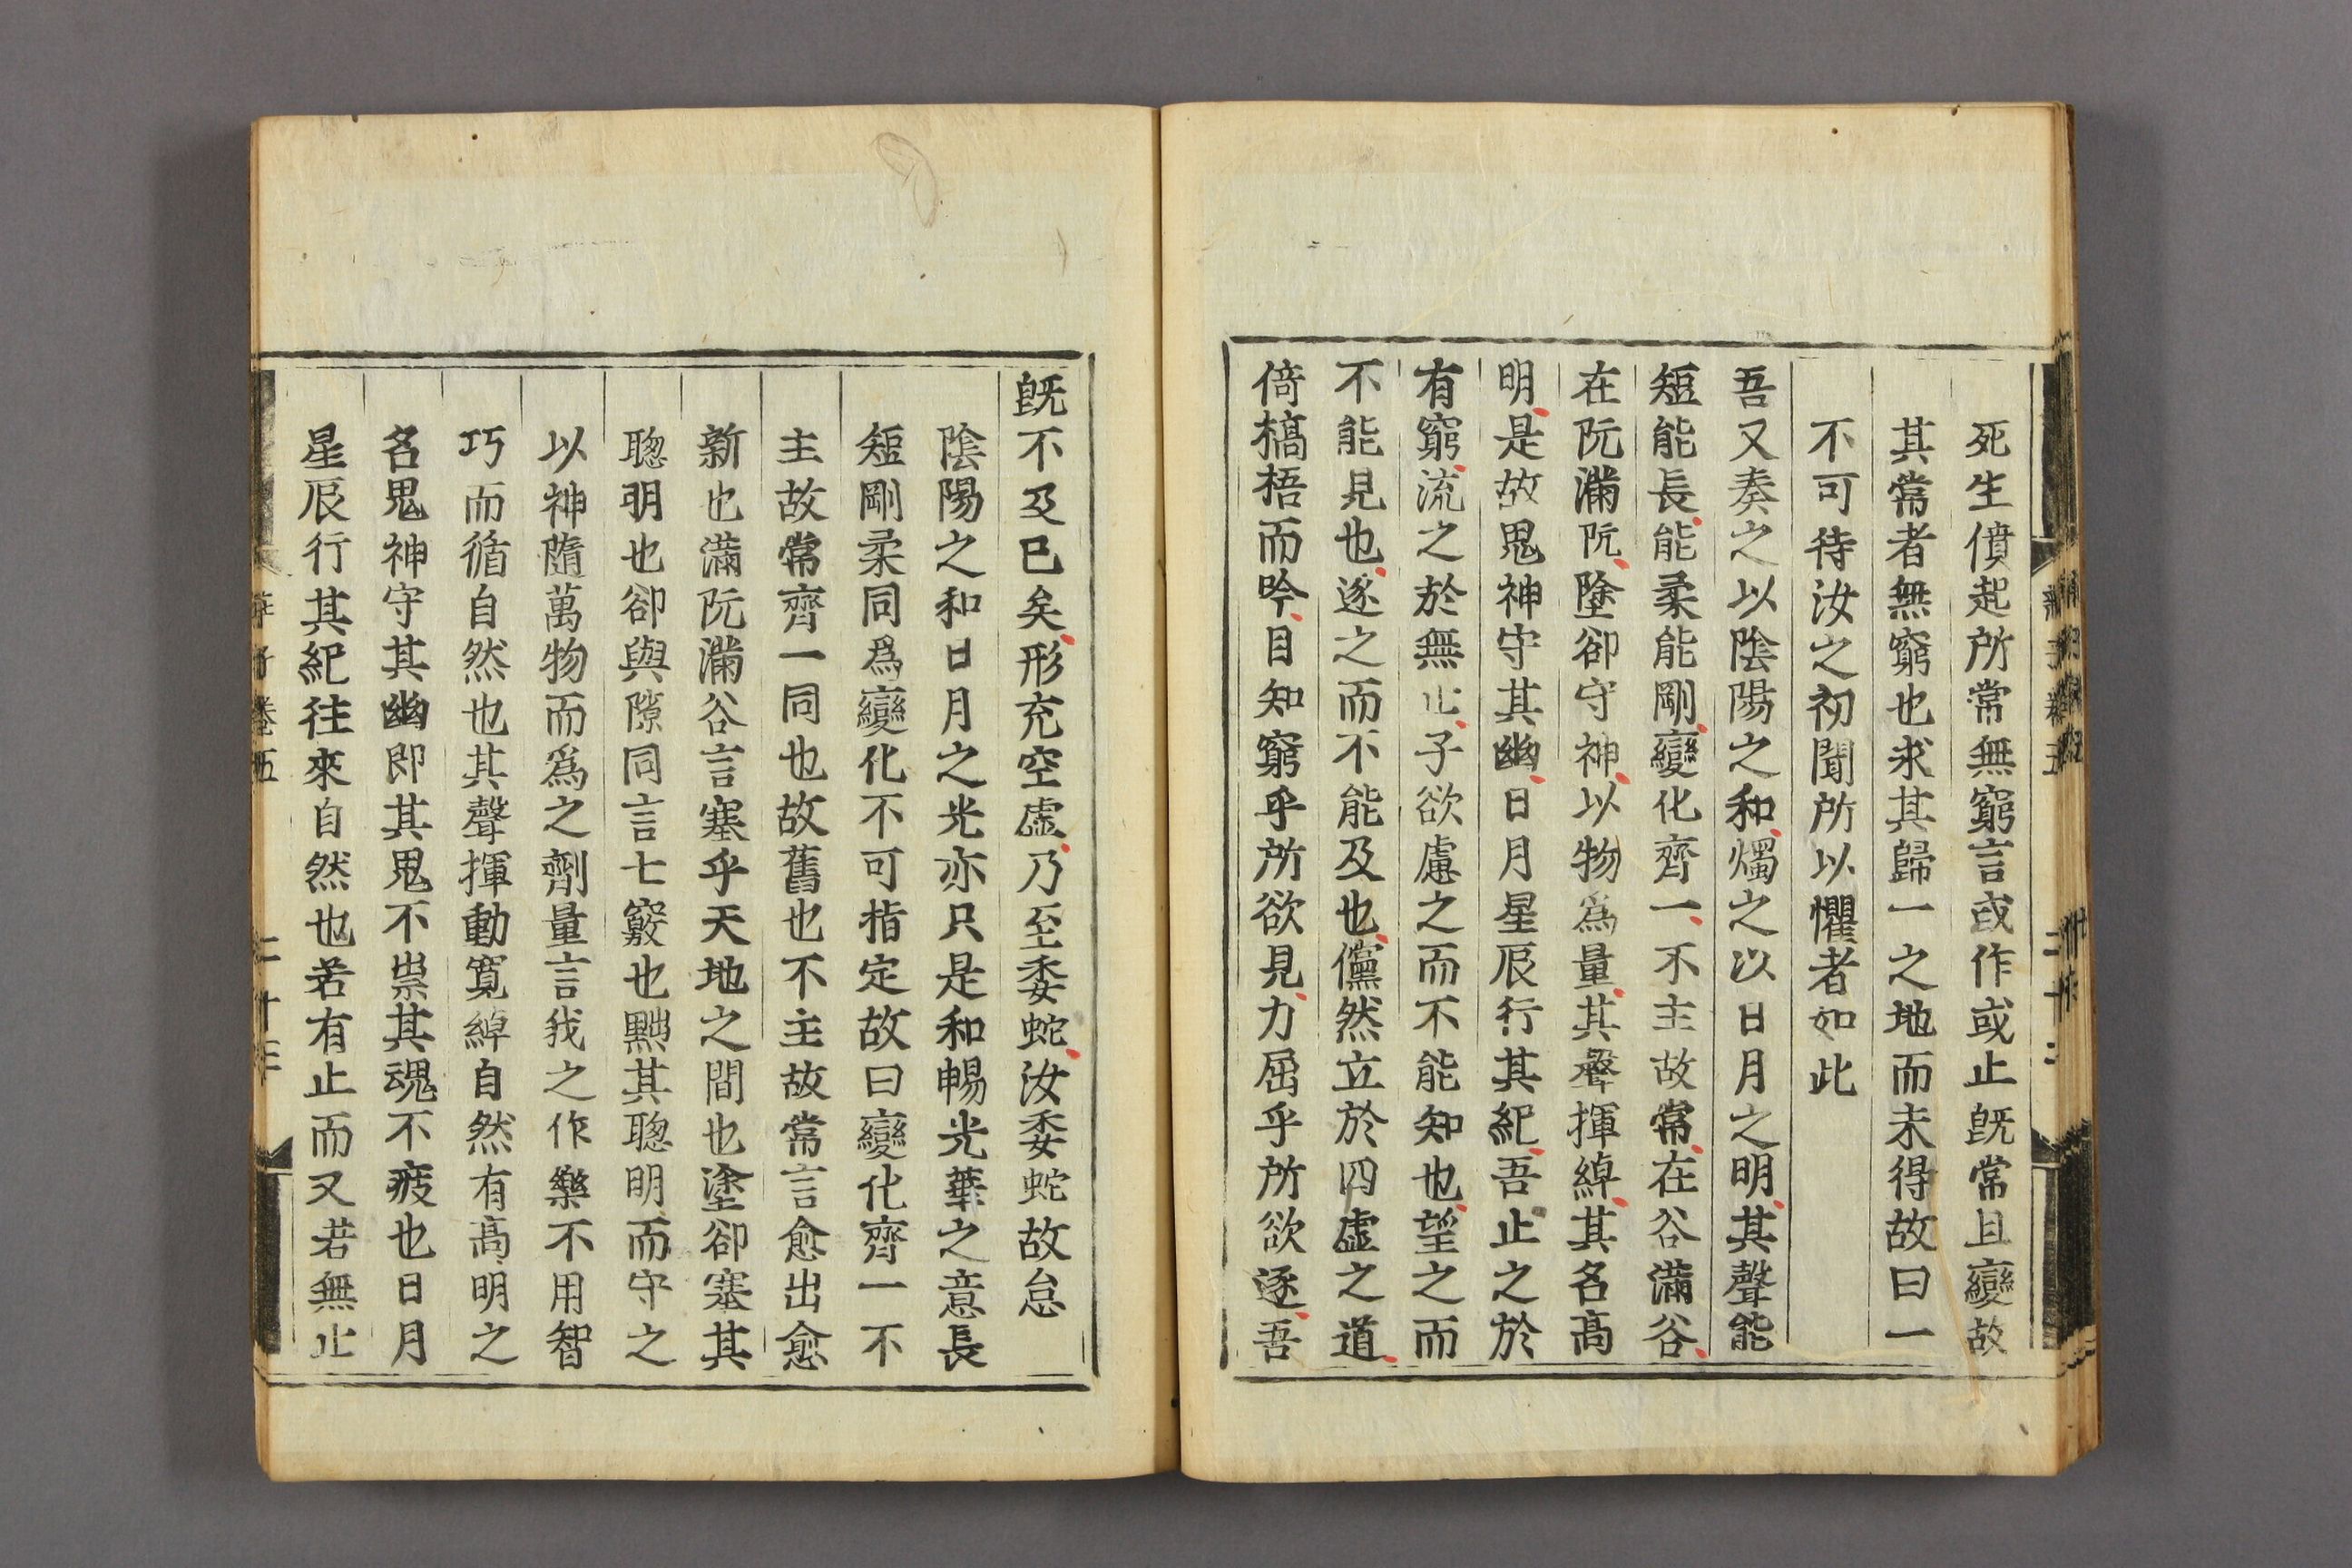 死生僨起所常無窮言或作或止旣常且變故
其常者無窮也求其歸一之地而未得故曰一
不可待汝之初聞所以懼者如此
吾又奏之以陰陽之和燭之以日月之明其聲能
短能長能柔能剛變化齊一不主故常在谷滿谷
在阬滿阬塗卻守神以物爲量其聲揮綽其名高
明是故鬼神守其幽日月星辰行其紀吾止之於
有窮流之於無止子欲慮之而不能知也望之而
不能見也逐之而不能及也儻然立於四虛之道
倚槁梧而吟目知窮乎所欲見力屈乎所欲逐吾
旣不及已矣形充空虛乃至委蛇汝委蛇故怠
陰陽之和日月之光亦只是和暢光華之意長
短剛柔同爲變化不可指定故曰變化齊一不
主故常齊一同也故舊也不主故常言愈出愈
新也滿阬滿谷言塞乎天地之間也塗卻塞其
聰明也卻與隙同言七竅也黜其聰明而守之
以神隨萬物而爲之劑量言我之作樂不用智
巧而循自然也其聲揮動寬綽自然有高明之
名鬼神守其幽即其鬼不祟其魂不疲也日月
星辰行其紀往來自然也若有止而又若無止
莊子卷五
二十三